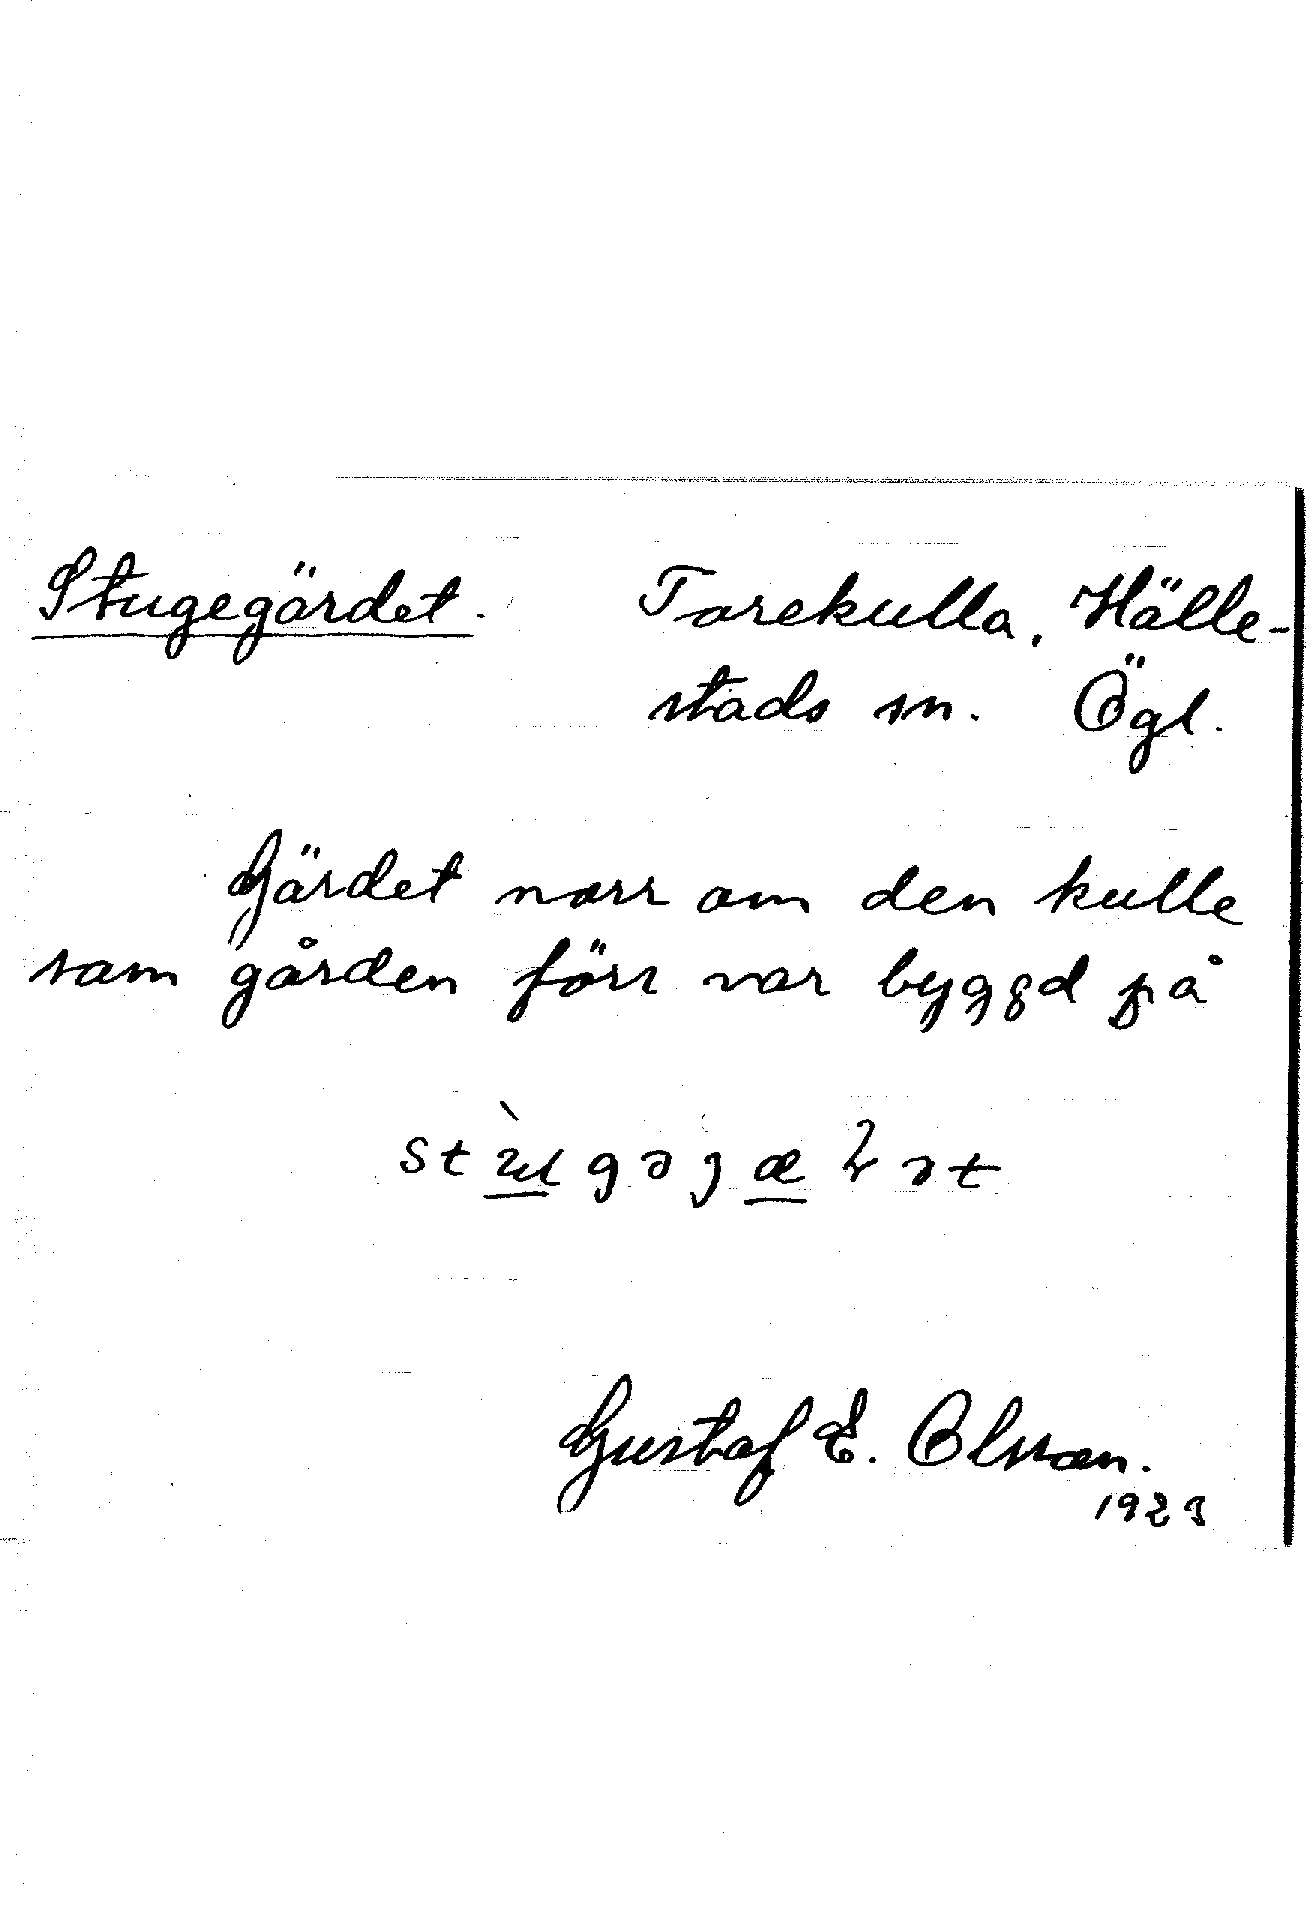 Stugegärdet. Torekulla, Hälle-
stads sn. Ögl.
Gärdet norr om den kulle
som gården förr var byggd på
Gustaf E. Olsson.
1923